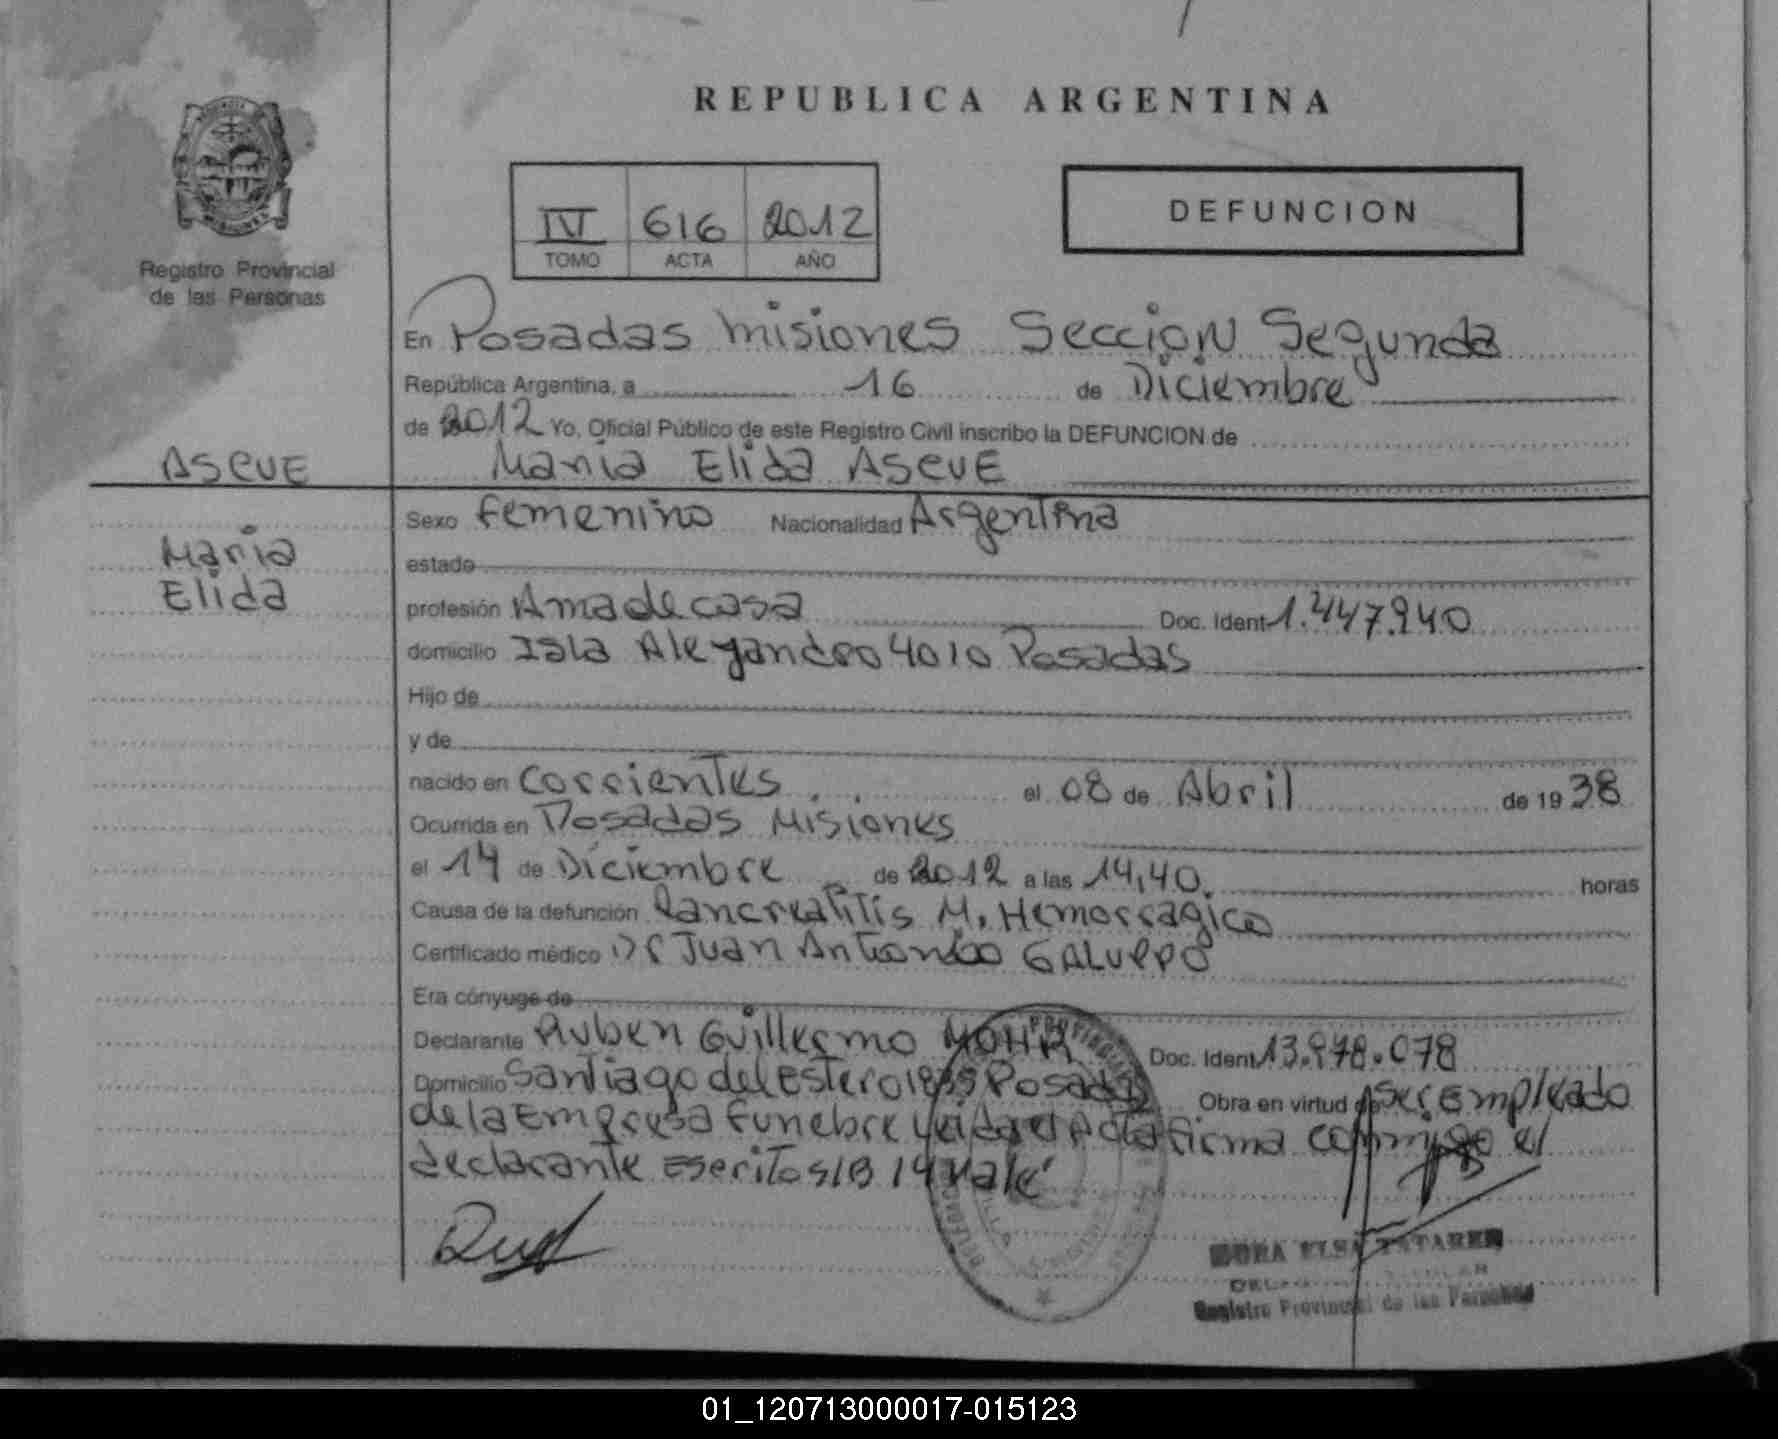 REPUBLICA ARGENTINA
IV 616 2012
TOMO ACTA AÑO
DEFUNCION
Registro Provincial
de las Personas
En Posadas Misiones Seccion Segunda
República Argentina, a 16 de Diciembre
de 2012 Yo, Oficial Público de este Registro Civil inscribo la DEFUNCION de
Maria Elida ASEUE
ASEUE
Maria
Elida
Sexo Femenino Nacionalidad Argentina
estado
profesión Ama de casa Doc. Ident 1.447.940
domicilio Isla Aleyandro 4010 Posadas
Hijo de
y de
nacido en Corrientes el 08 de Abril de 1938
Ocurrida en Posadas Misiones
el 14 de Diciembre de 2012 a las 14,40. horas
Causa de la defunción Pancreatitis M. Hemorragica
Certificado médico Dr Juan Antonio GALUPPO
Era cónyuge de
Declarante Ruben Guillermo MOHR Doc. Ident 13.978.078
Domicilio Santiago del Estero Posadas Obra en virtud de ser Empleado
de la Empresa Funebre Leida el Acta firma conmigo el
declarante Escritos 1B 14 Vale
ELSA
Registro Provincial de las Personas
01_120713000017-015123